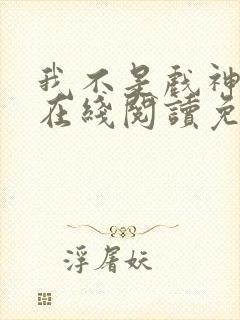 我不是戲神
在綫閱讀免
浮屠妖